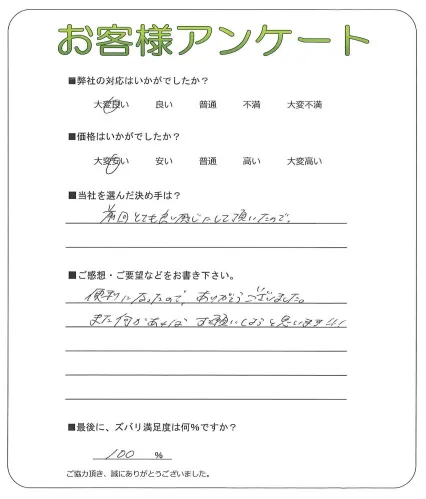 お客様アンケート
■弊社の対応はいかがでしたか？
大変良い 良い 普通 不満 大変不満
■価格はいかがでしたか？
大変安い 安い 普通 高い 大変高い
■当社を選んだ決め手は？
前回とても良い感じにして頂いたので。
■ご感想・ご要望などをお書き下さい。
便利になったので、ありがとうございました。
また何かあればお願いしようと思います!!!
■最後に、ズバリ満足度は何％ですか？
100 ％
ご協力頂き、誠にありがとうございました。